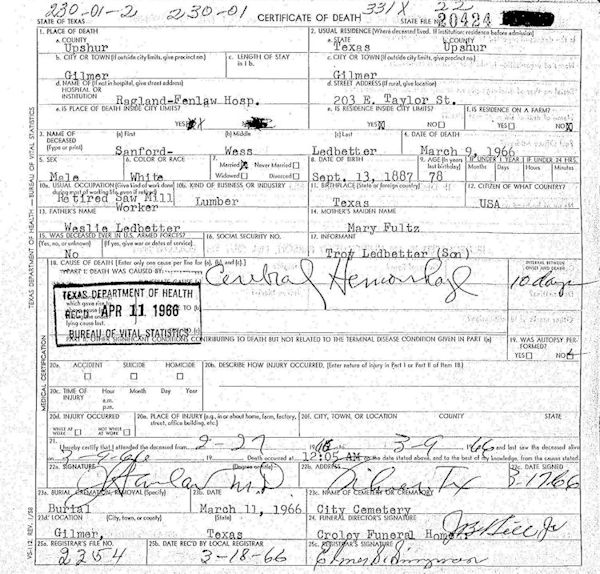 230-01-2 230-01 331X 22
STATE OF TEXAS CERTIFICATE OF DEATH STATE FILE NO. 20424
1. PLACE OF DEATH 2. USUAL RESIDENCE (Where deceased lived. If institution: residence before admission)
a. COUNTY a. STATE b. COUNTY
Upshur Texas Upshur
b. CITY OR TOWN (If outside city limits, give precinct no.) c. LENGTH OF STAY c. CITY OR TOWN (If outside city limits, give precinct no.)
Gilmer in 1 b. Gilmer
d. NAME OF (If not in hospital, give street address) d. STREET ADDRESS (If rural, give location)
HOSPITAL OR
INSTITUTION Ragland-Fenlaw Hosp. 203 E. Taylor St.
e. IS PLACE OF DEATH INSIDE CITY LIMITS? e. IS RESIDENCE INSIDE CITY LIMITS? f. IS RESIDENCE ON A FARM?
YES X YES X NO YES NO X
3. NAME OF DECEASED (Type or print) (a) First (b) Middle (c) Last 4. DATE OF DEATH
Sanford- Wess Ledbetter March 9, 1966
5. SEX 6. COLOR OR RACE 7. Married X Never Married Widowed Divorced 8. DATE OF BIRTH 9. AGE (In years last birthday) IF UNDER 1 YEAR IF UNDER 24 HRS.
Months Days Hours Min.
Male White Sept. 13, 1887 78
10a. USUAL OCCUPATION (Give kind of work done during most of working life, even if retired) 10b. KIND OF BUSINESS OR INDUSTRY 11. BIRTHPLACE (State or foreign country) 12. CITIZEN OF WHAT COUNTRY?
Retired Saw Mill Worker Lumber Texas USA
13. FATHER'S NAME 14. MOTHER'S MAIDEN NAME
Weslie Ledbetter Mary Fultz
15. WAS DECEASED EVER IN U.S. ARMED FORCES? 16. SOCIAL SECURITY NO. 17. INFORMANT
(Yes, no, or unknown) (If yes, give war or dates of service)
No Troy Ledbetter (Son)
18. CAUSE OF DEATH [Enter only one cause per line for (a), (b), and (c).] INTERVAL BETWEEN ONSET AND DEATH
PART I. DEATH WAS CAUSED BY:
Cerebral Hemorrhage 10 days
TEXAS DEPARTMENT OF HEALTH
REC'D APR 11 1966
BUREAU OF VITAL STATISTICS
which gave rise to
cause (a)
lying cause last.
PART II. OTHER SIGNIFICANT CONDITIONS CONTRIBUTING TO DEATH BUT NOT RELATED TO THE TERMINAL DISEASE CONDITION GIVEN IN PART I(a) 19. WAS AUTOPSY PERFORMED?
YES NO
20a. ACCIDENT SUICIDE HOMICIDE 20b. DESCRIBE HOW INJURY OCCURRED. (Enter nature of injury in Part I or Part II of Item 18)
20c. TIME OF INJURY Hour Month Day Year
a.m.
p.m.
20d. INJURY OCCURRED 20e. PLACE OF INJURY (e.g., in or about home, farm, factory, street, office building, etc.) 20f. CITY, TOWN, OR LOCATION COUNTY STATE
WHILE AT WORK NOT WHILE AT WORK
21. I hereby certify that I attended the deceased from 2-27 1966 to 3-9 1966 and last saw the deceased alive
on 3-9-66 Death occurred at 12:05 A m on the date stated above, and to the best of my knowledge, from the causes stated.
22a. SIGNATURE (Degree or title) 22b. ADDRESS 22c. DATE SIGNED
M.D. Gilmer, Tx 3-17-66
23a. BURIAL, CREMATION, REMOVAL (Specify) 23b. DATE 23c. NAME OF CEMETERY OR CREMATORY
Burial March 11, 1966 City Cemetery
23d. LOCATION (City, town, or county) (State) 24. FUNERAL DIRECTOR'S SIGNATURE
Gilmer, Texas Croley Funeral Home
25a. REGISTRAR'S FILE NO. 25b. DATE REC'D BY LOCAL REGISTRAR 25c. REGISTRAR'S SIGNATURE
2354 3-18-66
TEXAS DEPARTMENT OF HEALTH — BUREAU OF VITAL STATISTICS
MEDICAL CERTIFICATION
VS-112 REV. 1/58